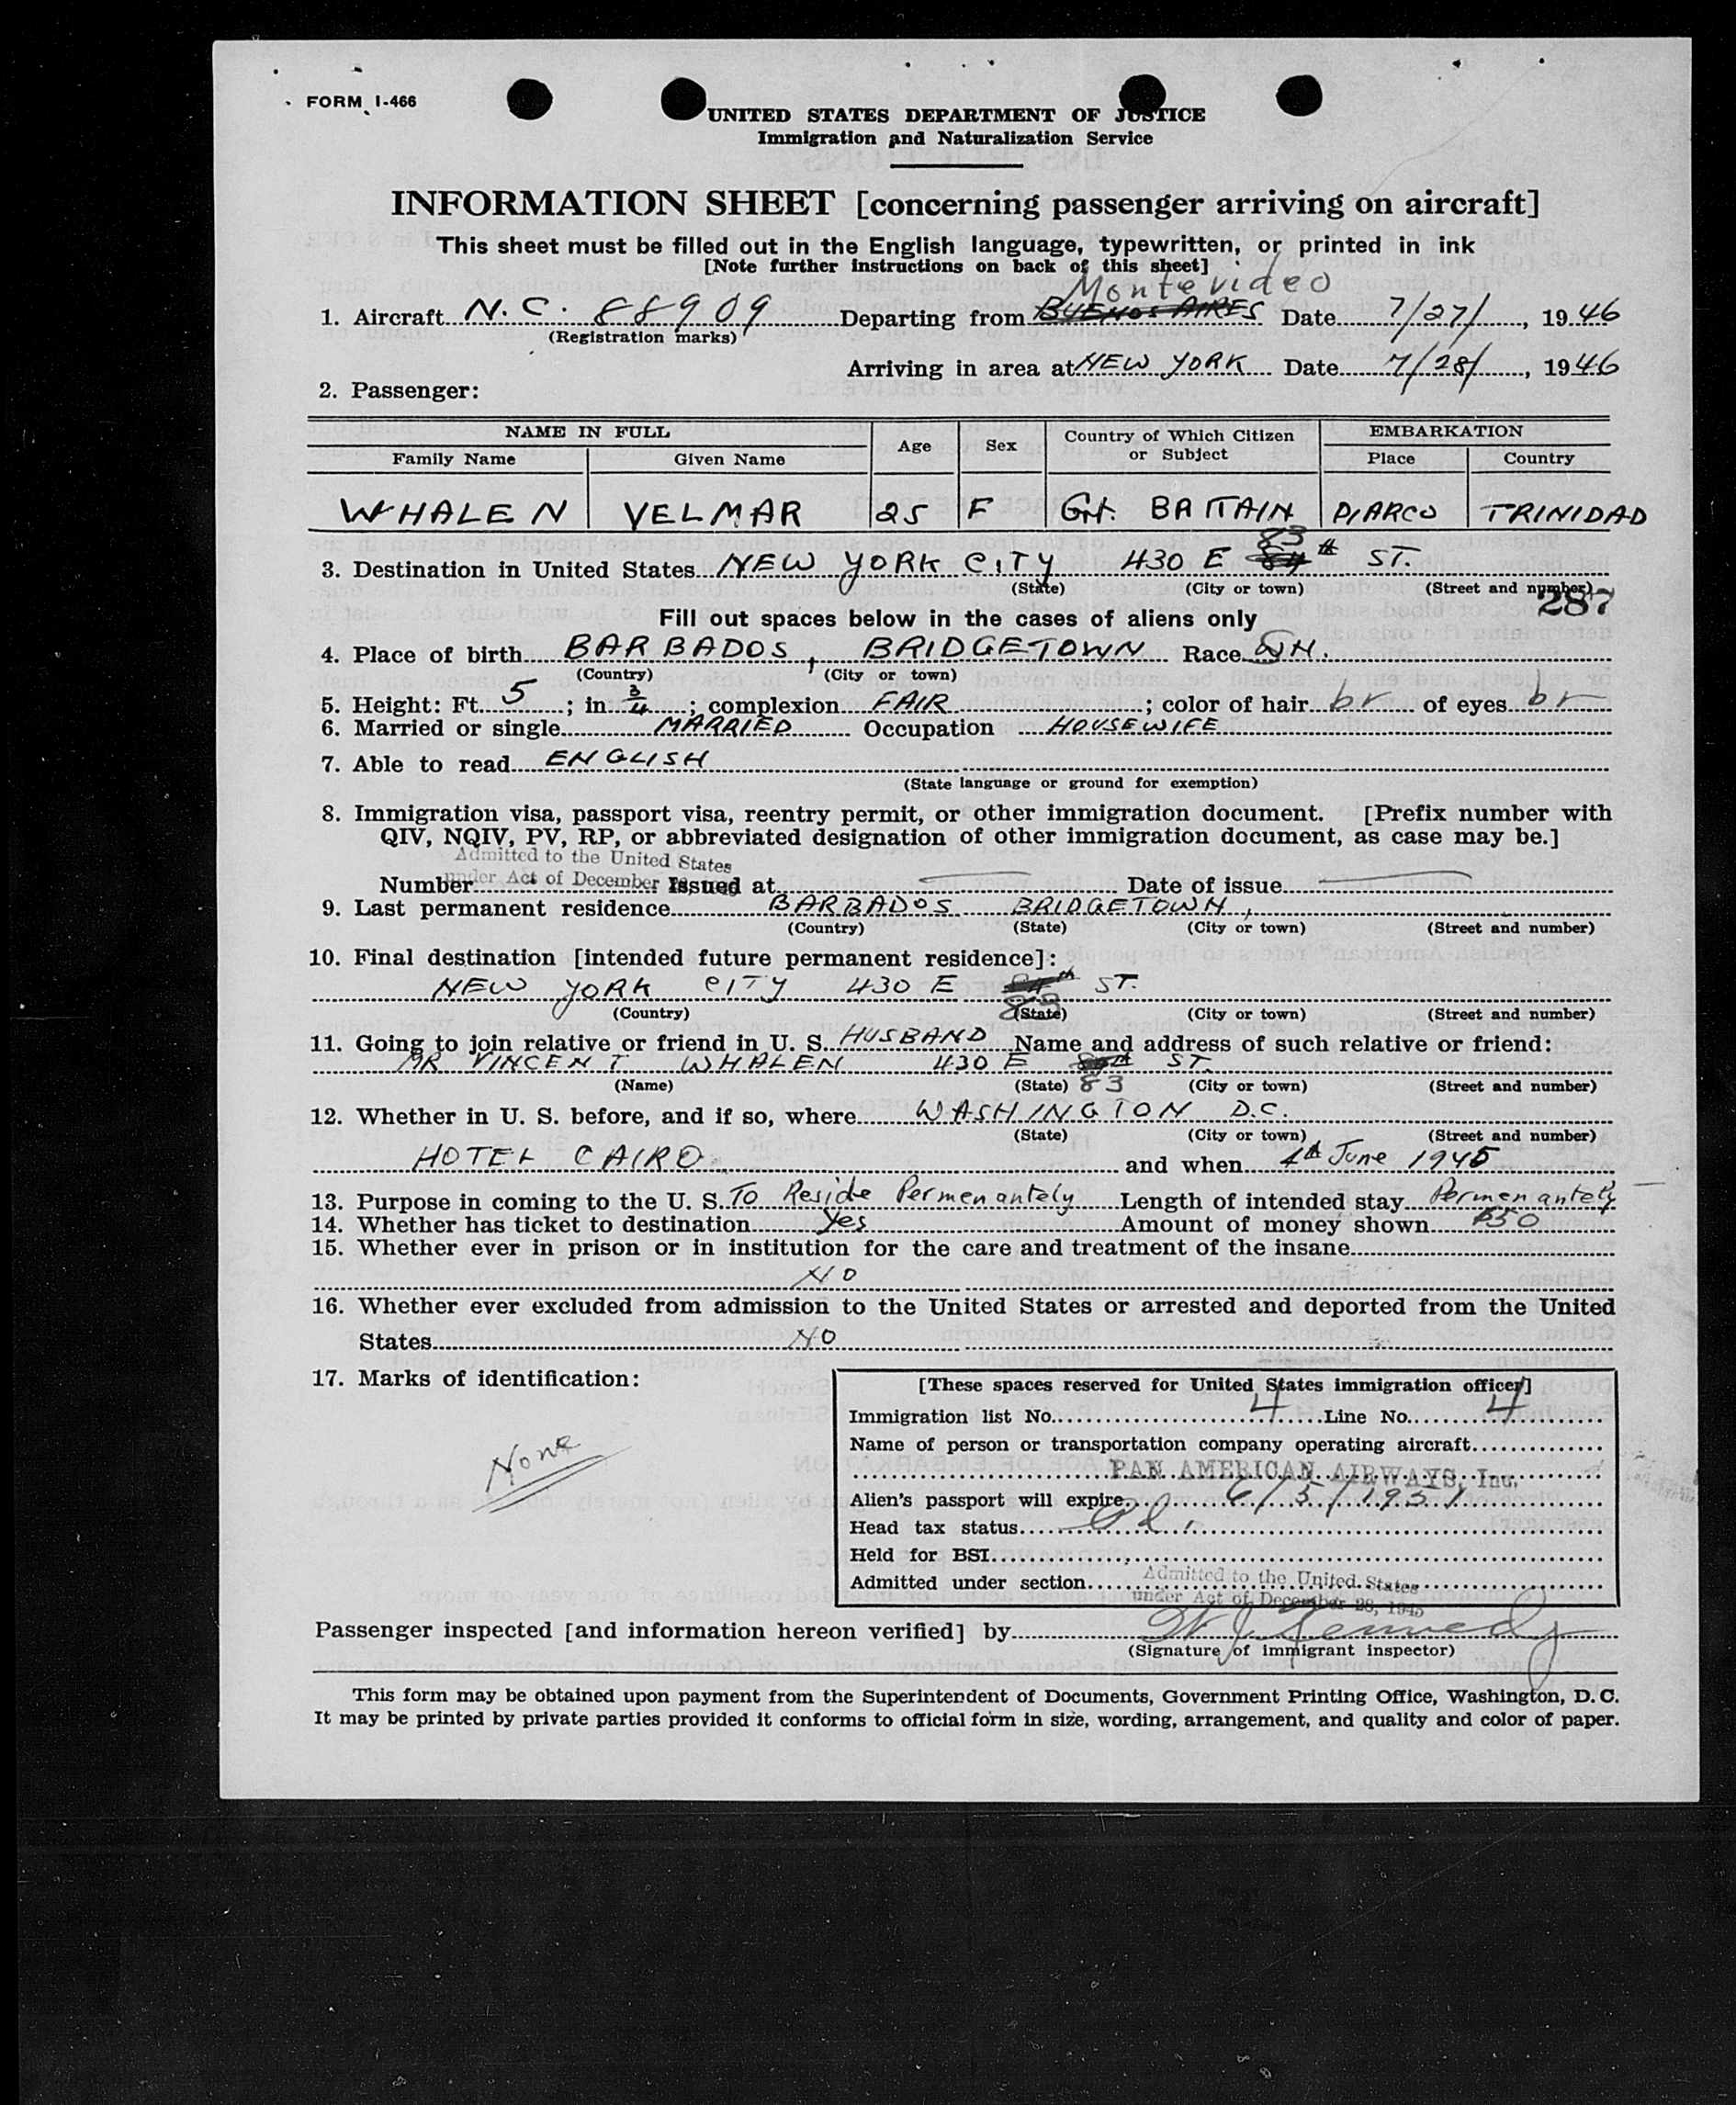 FORM I-466
UNITED STATES DEPARTMENT OF JUSTICE
Immigration and Naturalization Service
INFORMATION SHEET [concerning passenger arriving on aircraft]
This sheet must be filled out in the English language, typewritten, or printed in ink
[Note further instructions on back of this sheet]
Montevideo
1. Aircraft N.C. 88909 Departing from BUENOS AIRES Date 7/27/, 1946
(Registration marks)
Arriving in area at NEW YORK Date 7/28/, 1946
2. Passenger:
NAME IN FULL Age Sex Country of Which Citizen or Subject EMBARKATION
Family Name Given Name Place Country
WHALEN VELMAR 25 F Gt. BRITAIN PIARCO TRINIDAD
83
3. Destination in United States NEW YORK CITY 430 E 84th ST.
(State) (City or town) (Street and number)
287
Fill out spaces below in the cases of aliens only
4. Place of birth BARBADOS, BRIDGETOWN Race WH.
(Country) (City or town)
5. Height: Ft. 5; in. 3/4; complexion FAIR; color of hair br of eyes br
6. Married or single MARRIED Occupation HOUSEWIFE
7. Able to read ENGLISH
(State language or ground for exemption)
8. Immigration visa, passport visa, reentry permit, or other immigration document. [Prefix number with
QIV, NQIV, PV, RP, or abbreviated designation of other immigration document, as case may be.]
Admitted to the United States
under Act of December
Number Issued at Date of issue
9. Last permanent residence BARBADOS BRIDGETOWN,
(Country) (State) (City or town) (Street and number)
10. Final destination [intended future permanent residence]:
NEW YORK CITY 430 E 84th ST.
83
(Country) (State) (City or town) (Street and number)
11. Going to join relative or friend in U. S. HUSBAND Name and address of such relative or friend:
MR VINCENT WHALEN 430 E 84th ST.
(Name) (State) 83 (City or town) (Street and number)
12. Whether in U. S. before, and if so, where WASHINGTON D.C.
(State) (City or town) (Street and number)
HOTEL CAIRO and when 4th June 1945
13. Purpose in coming to the U. S. To Reside Permenantely Length of intended stay Permenantely
14. Whether has ticket to destination Yes Amount of money shown $50
15. Whether ever in prison or in institution for the care and treatment of the insane
NO
16. Whether ever excluded from admission to the United States or arrested and deported from the United
States NO
17. Marks of identification:
None
[These spaces reserved for United States immigration officer]
Immigration list No. 4 Line No. 4
Name of person or transportation company operating aircraft
PAN AMERICAN AIRWAYS, Inc.
Alien's passport will expire 6/5/1951
Head tax status
Held for BSI
Admitted under section Admitted to the United States
under Act of December 28, 1945
Passenger inspected [and information hereon verified] by W J Kennedy
(Signature of immigrant inspector)
This form may be obtained upon payment from the Superintendent of Documents, Government Printing Office, Washington, D. C.
It may be printed by private parties provided it conforms to official form in size, wording, arrangement, and quality and color of paper.